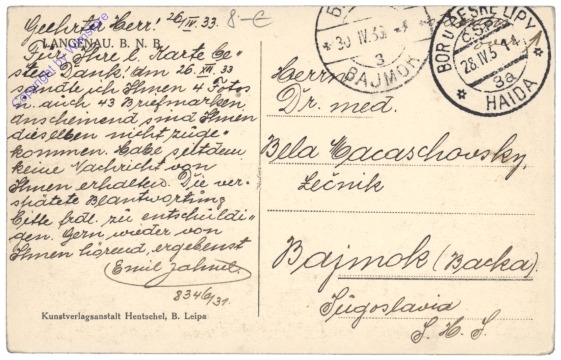 Geehrter Herr! 26/IV. 33.
8-€
LANGENAU. B. N. B.
Für Ihre l. Karte be-
sten Dank! Am 26. XII. 33
sandte ich Ihnen 4 Fotos
n auch 43 Briefmarken,
anscheinend sind Ihnen
dieselben nicht zuge-
kommen. Habe seitdem
keine Nachricht von
Ihnen erhalten. Die ver-
spätete Beantwortung
bitte frdl. zu entschuldi-
gen. Gern wieder von
Ihnen hörend, ergebenst
Emil
8346/31.
Kunstverlagsanstalt Hentschel, B. Leipa
30 IV. 33
a
BAJMOK
BOR U ČESKÉ LIPY
Č.S.P.
28. IV. 5
3a
HAIDA
Herrn
Dr. med.
Bela Macaschovsky,
Lečnik
Bajmok (Backa).
Jugoslavia
S. H. S.